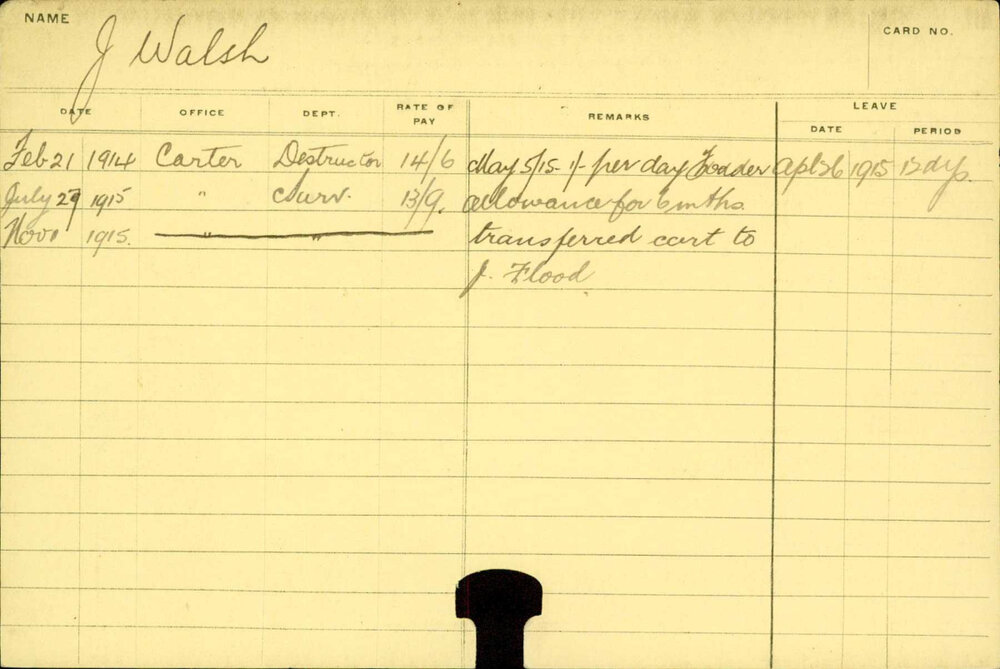 NAME
J Walsh
CARD NO.
DATE OFFICE DEPT. RATE OF PAY REMARKS LEAVE
DATE PERIOD
Feb 21 1914 Carter Destructor 14/6 May 5/15 1/- per day Fodder Apl 26 1915 12 dys.
July 27 1915 " Surv. 13/9. allowance for 6 mths.
Nov 1 1915. " " transferred cart to
J. Flood